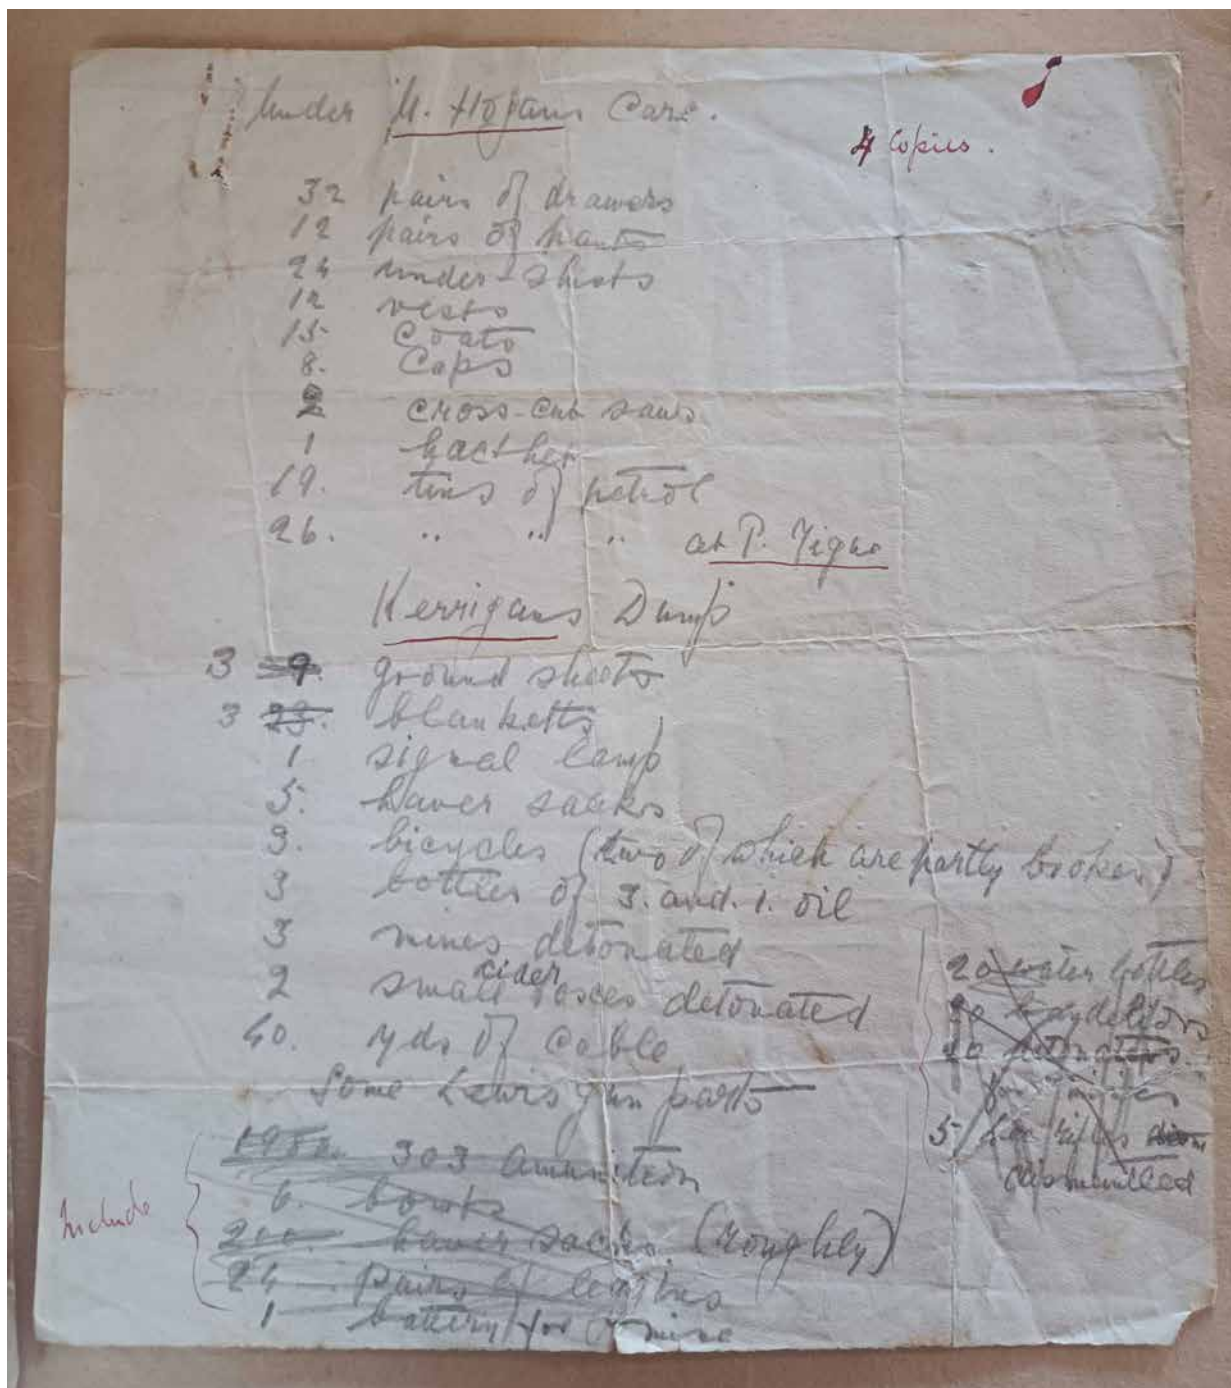 Under M. Hogans Care.
4 Copies.
32 pairs of drawers
12 pairs of pants
24 under-shirts
12 vests
15 Coats
8. Caps
2 cross-cut saws
1 hacthet
19. tins of petrol
26. " " " at P. Tighe
Kerrigans Dump
3 9. ground sheets
3 23. blanketts
1 signal lamp
5. haver sacks
3. bicycles (two of which are partly broken)
3 bottles of 3. and. 1. oil
3 mines detonated
2 small cider detonated
40. yds of Cable
Some Lewis gun parts
303 Amunition
6.
200 haver sacks (roughly)
24 Pairs of
1 battery for mine
Include
20 water bottles
for
5 rifles